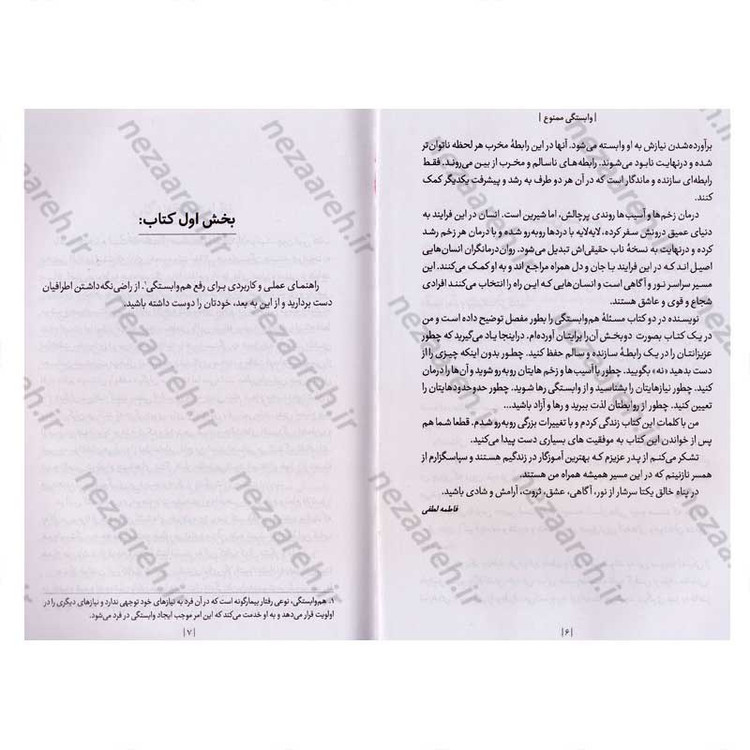 | وابستگی ممنوع |
برآورده‌شدن نیازش به او وابسته می‌شود. آنها در این رابطهٔ مخرب هر لحظه ناتوان‌تر
شده و درنهایت نابود می‌شوند. رابطه‌های ناسالم و مخرب از بین می‌روند. فقط
رابطه‌ای سازنده و ماندگار است که در آن هر دو طرف به رشد و پیشرفت یکدیگر کمک
کنند.
درمان زخم‌ها و آسیب‌ها روندی پرچالش، اما شیرین است. انسان در این فرایند به
دنیای عمیق درونش سفر کرده، لایه‌لایه با دردها روبه‌رو شده و با درمان هر زخم رشد
کرده و درنهایت به نسخهٔ ناب حقیقی‌اش تبدیل می‌شود. روان‌درمانگران انسان‌هایی
اصیل‌اند که در این فرایند با جان و دل همراه مراجع‌اند و به او کمک می‌کنند. این
مسیر سراسر نور و آگاهی است و انسان‌هایی که این راه را انتخاب می‌کنند افرادی
شجاع و قوی و عاشق هستند.
نویسنده در دو کتاب مسئلهٔ هم‌وابستگی را بطور مفصل توضیح داده است و من
در یک کتاب بصورت دوبخش آن‌را برایتان آورده‌ام. دراینجا یاد می‌گیرید که چطور
عزیزانتان را در یک رابطهٔ سازنده و سالم حفظ کنید. چطور بدون اینکه چیزی را از
دست بدهید «نه» بگویید. چطور با آسیب‌ها و زخم‌هایتان روبه‌رو شوید و آن‌ها را درمان
کنید. چطور نیازهایتان را بشناسید و از وابستگی رها شوید. چطور حدوحدودهایتان را
تعیین کنید. چطور از روابطتان لذت ببرید و رها و آزاد باشید...
من با کلمات این کتاب زندگی کردم و با تغییرات بزرگی روبه‌رو شدم. قطعا شما هم
پس از خواندن این کتاب به موفقیت های بسیاری دست پیدا می‌کنید.
تشکر می‌کنم از پدر عزیزم که بهترین آموزگار در زندگیم هستند و سپاسگزارم از
همسر نازنینم که در این مسیر همیشه همراه من هستند.
در پناه خالق یکتا سرشار از نور، آگاهی، عشق، ثروت، آرامش و شادی باشید.
فاطمه لطفی
| ۶ |
بخش اول کتاب:
راهنمای عملی و کاربردی برای رفع هم‌وابستگی۱. از راضی‌نگه‌داشتن اطرافیان
دست بردارید و از این به بعد، خودتان را دوست داشته باشید.
۱. هم‌وابستگی، نوعی رفتار بیمارگونه است که در آن فرد به نیازهای خود توجهی ندارد و نیازهای دیگری را در
اولویت قرار می‌دهد و به او خدمت می‌کند که این امر موجب ایجاد وابستگی در فرد می‌شود.
| ۷ |
nezaareh.ir
nezaareh.ir
nezaareh.ir
nezaareh.ir
nezaareh.ir
nezaareh.ir